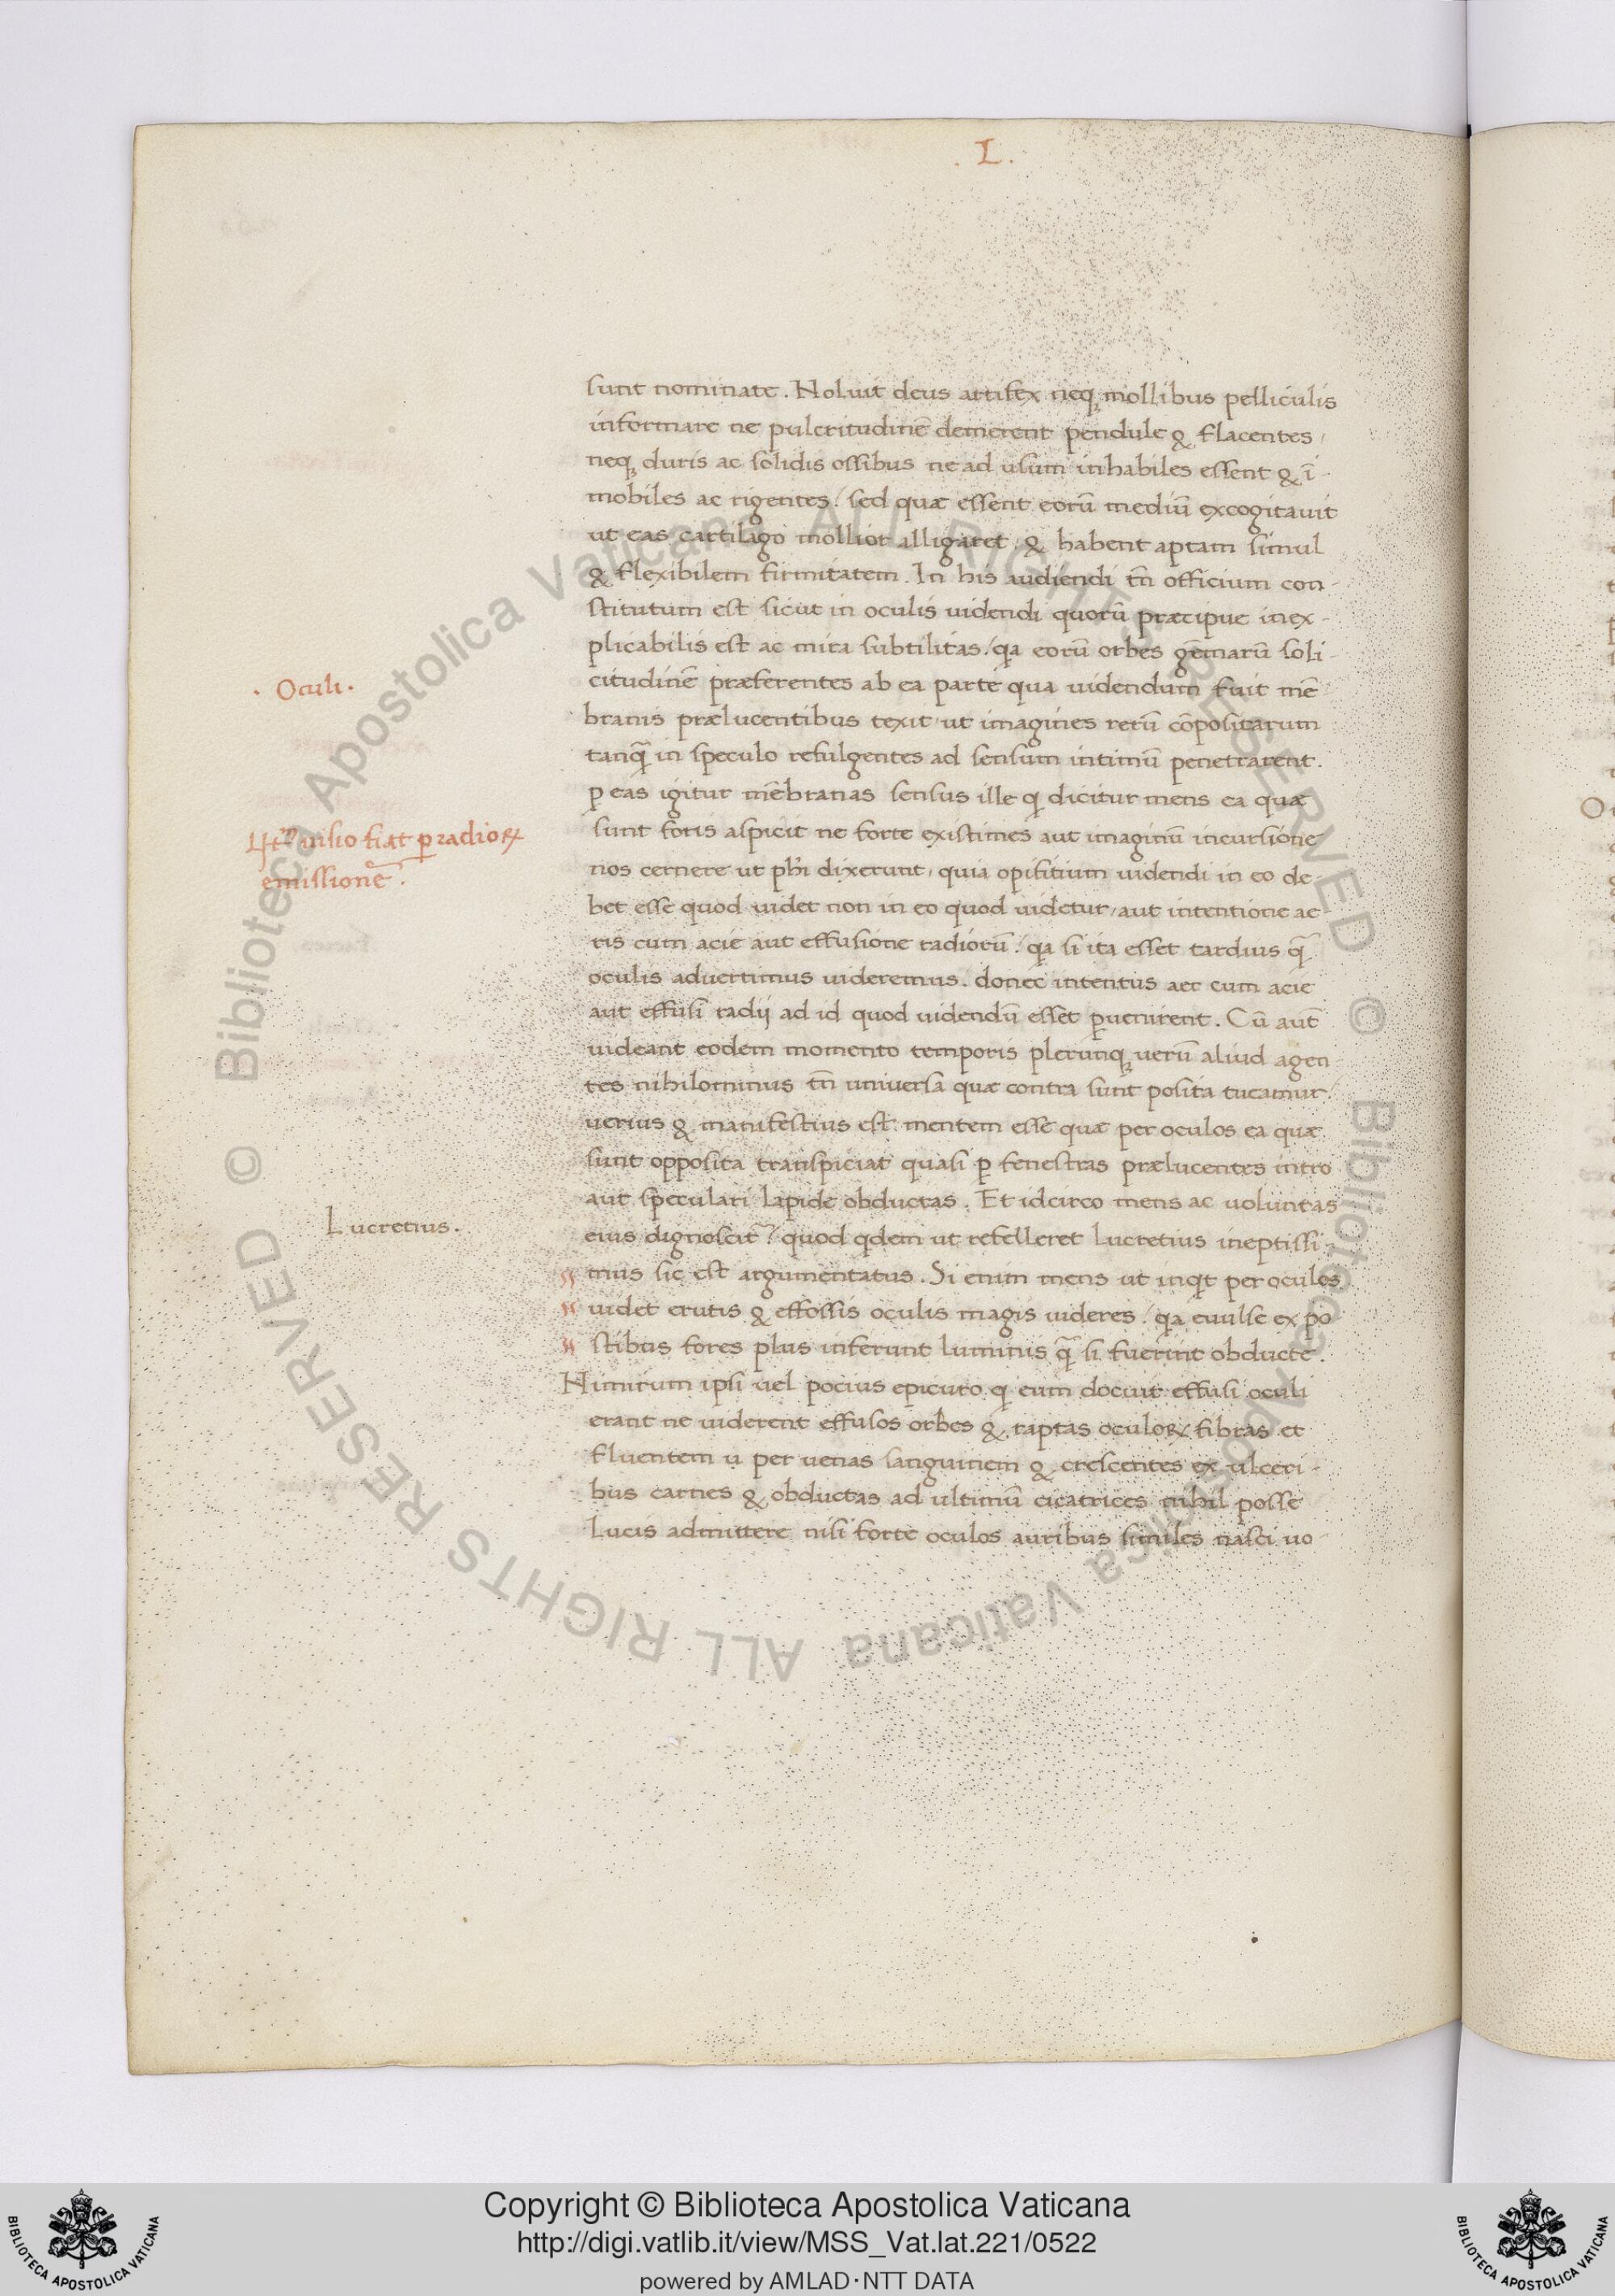 . L .
sunt nominate . Noluit deus artifex neqꝫ mollibus pelliculis
informare ne pulcritudinē demerent pendule & flacentes /
neqꝫ duris ac solidis ossibus ne ad usum inhabiles essent & ī-
mobiles ac rigentes / sed quæ essent eorū mediū excogitauit
ut eas cartilago mollior alligaret . & habent aptam simul
& flexibilem firmitatem . In his audiendi tn̄ officium con-
stitutum est sicut in oculis uidendi quorū præcipue inex-
plicabilis est ac mira subtilitas / qa eorū orbes gēmarū soli-
. Oculi .
citudinē præferentes ab ea parte qua uidendum fuit mē
branis prælucentibus texit . ut imagines rerū cōpositarum
tanq̄ in speculo refulgentes ad sensum intimū penetrarent .
ꝑ eas igitur mēbranas sensus ille q dicitur mens ea quæ
uisio fiat ꝑ radioꝝ
emissionē .
sunt foris aspicit ne forte existimes aut imaginū incursione
nos cernere ut phi dixerunt . quia opifitium uidendi in eo de-
bet esse quod uidet non in eo quod uidetur / aut intentione ae-
ris cum acie aut effusione radiorū / qa si ita esset tardius q̄
oculis aduertimus uideremus . donec intentus aer cum acie
aut effusi radij ad id quod uidendū esset ꝑuenirent . Cū aut
uideant eodem momento temporis plerunqꝫ uerū aliud agen
tes nihilominus tn̄ uniuersa quæ contra sunt posita tueamur /
uerius & manifestius est mentem esse quæ per oculos ea quæ
sunt opposita transpiciat quasi ꝑ fenestras prælucentes intro
aut speculari lapide obductas . Et idcirco mens ac uoluntas
Lucretius .
eius dignoscit̄ / quod qdem ut refelleret Lucretius ineptissi-
mus sic est argumentatus . Si enim mens ut inqt per oculos
uidet erutis & effossis oculis magis uideres / qa euulse ex po
stibus fores plus inferunt luminis q̄ si fuerint obducte .
Nimirum ipsi uel pocius epicuro q eum docuit effusi oculi
erant ne uiderent effusos orbes & raptas oculoꝝ fibras et
fluentem u per uenas sanguinem & crescentes ex ulceri-
bus carnes & obductas ad ultimū cicatrices nihil posse
Lucis admittere nisi forte oculos auribus similes nasci uo-
© Biblioteca Apostolica Vaticana ALL RIGHTS RESERVED © Biblioteca Apostolica Vaticana ALL RIGHTS RESERVED
BIBLIOTECA APOSTOLICA VATICANA
Copyright © Biblioteca Apostolica Vaticana
http://digi.vatlib.it/view/MSS_Vat.lat.221/0522
powered by AMLAD·NTT DATA
BIBLIOTECA APOSTOLICA VATICANA